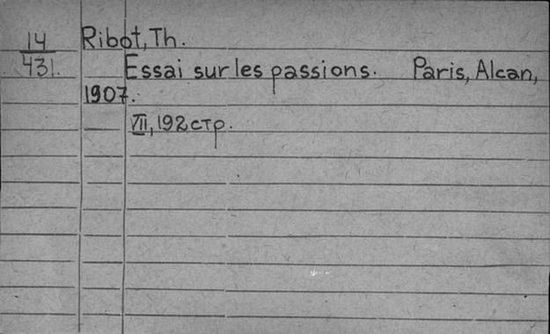 14 Ribot, Th.
431. Essai sur les passions. Paris, Alcan,
1907.
VII, 192 стр.